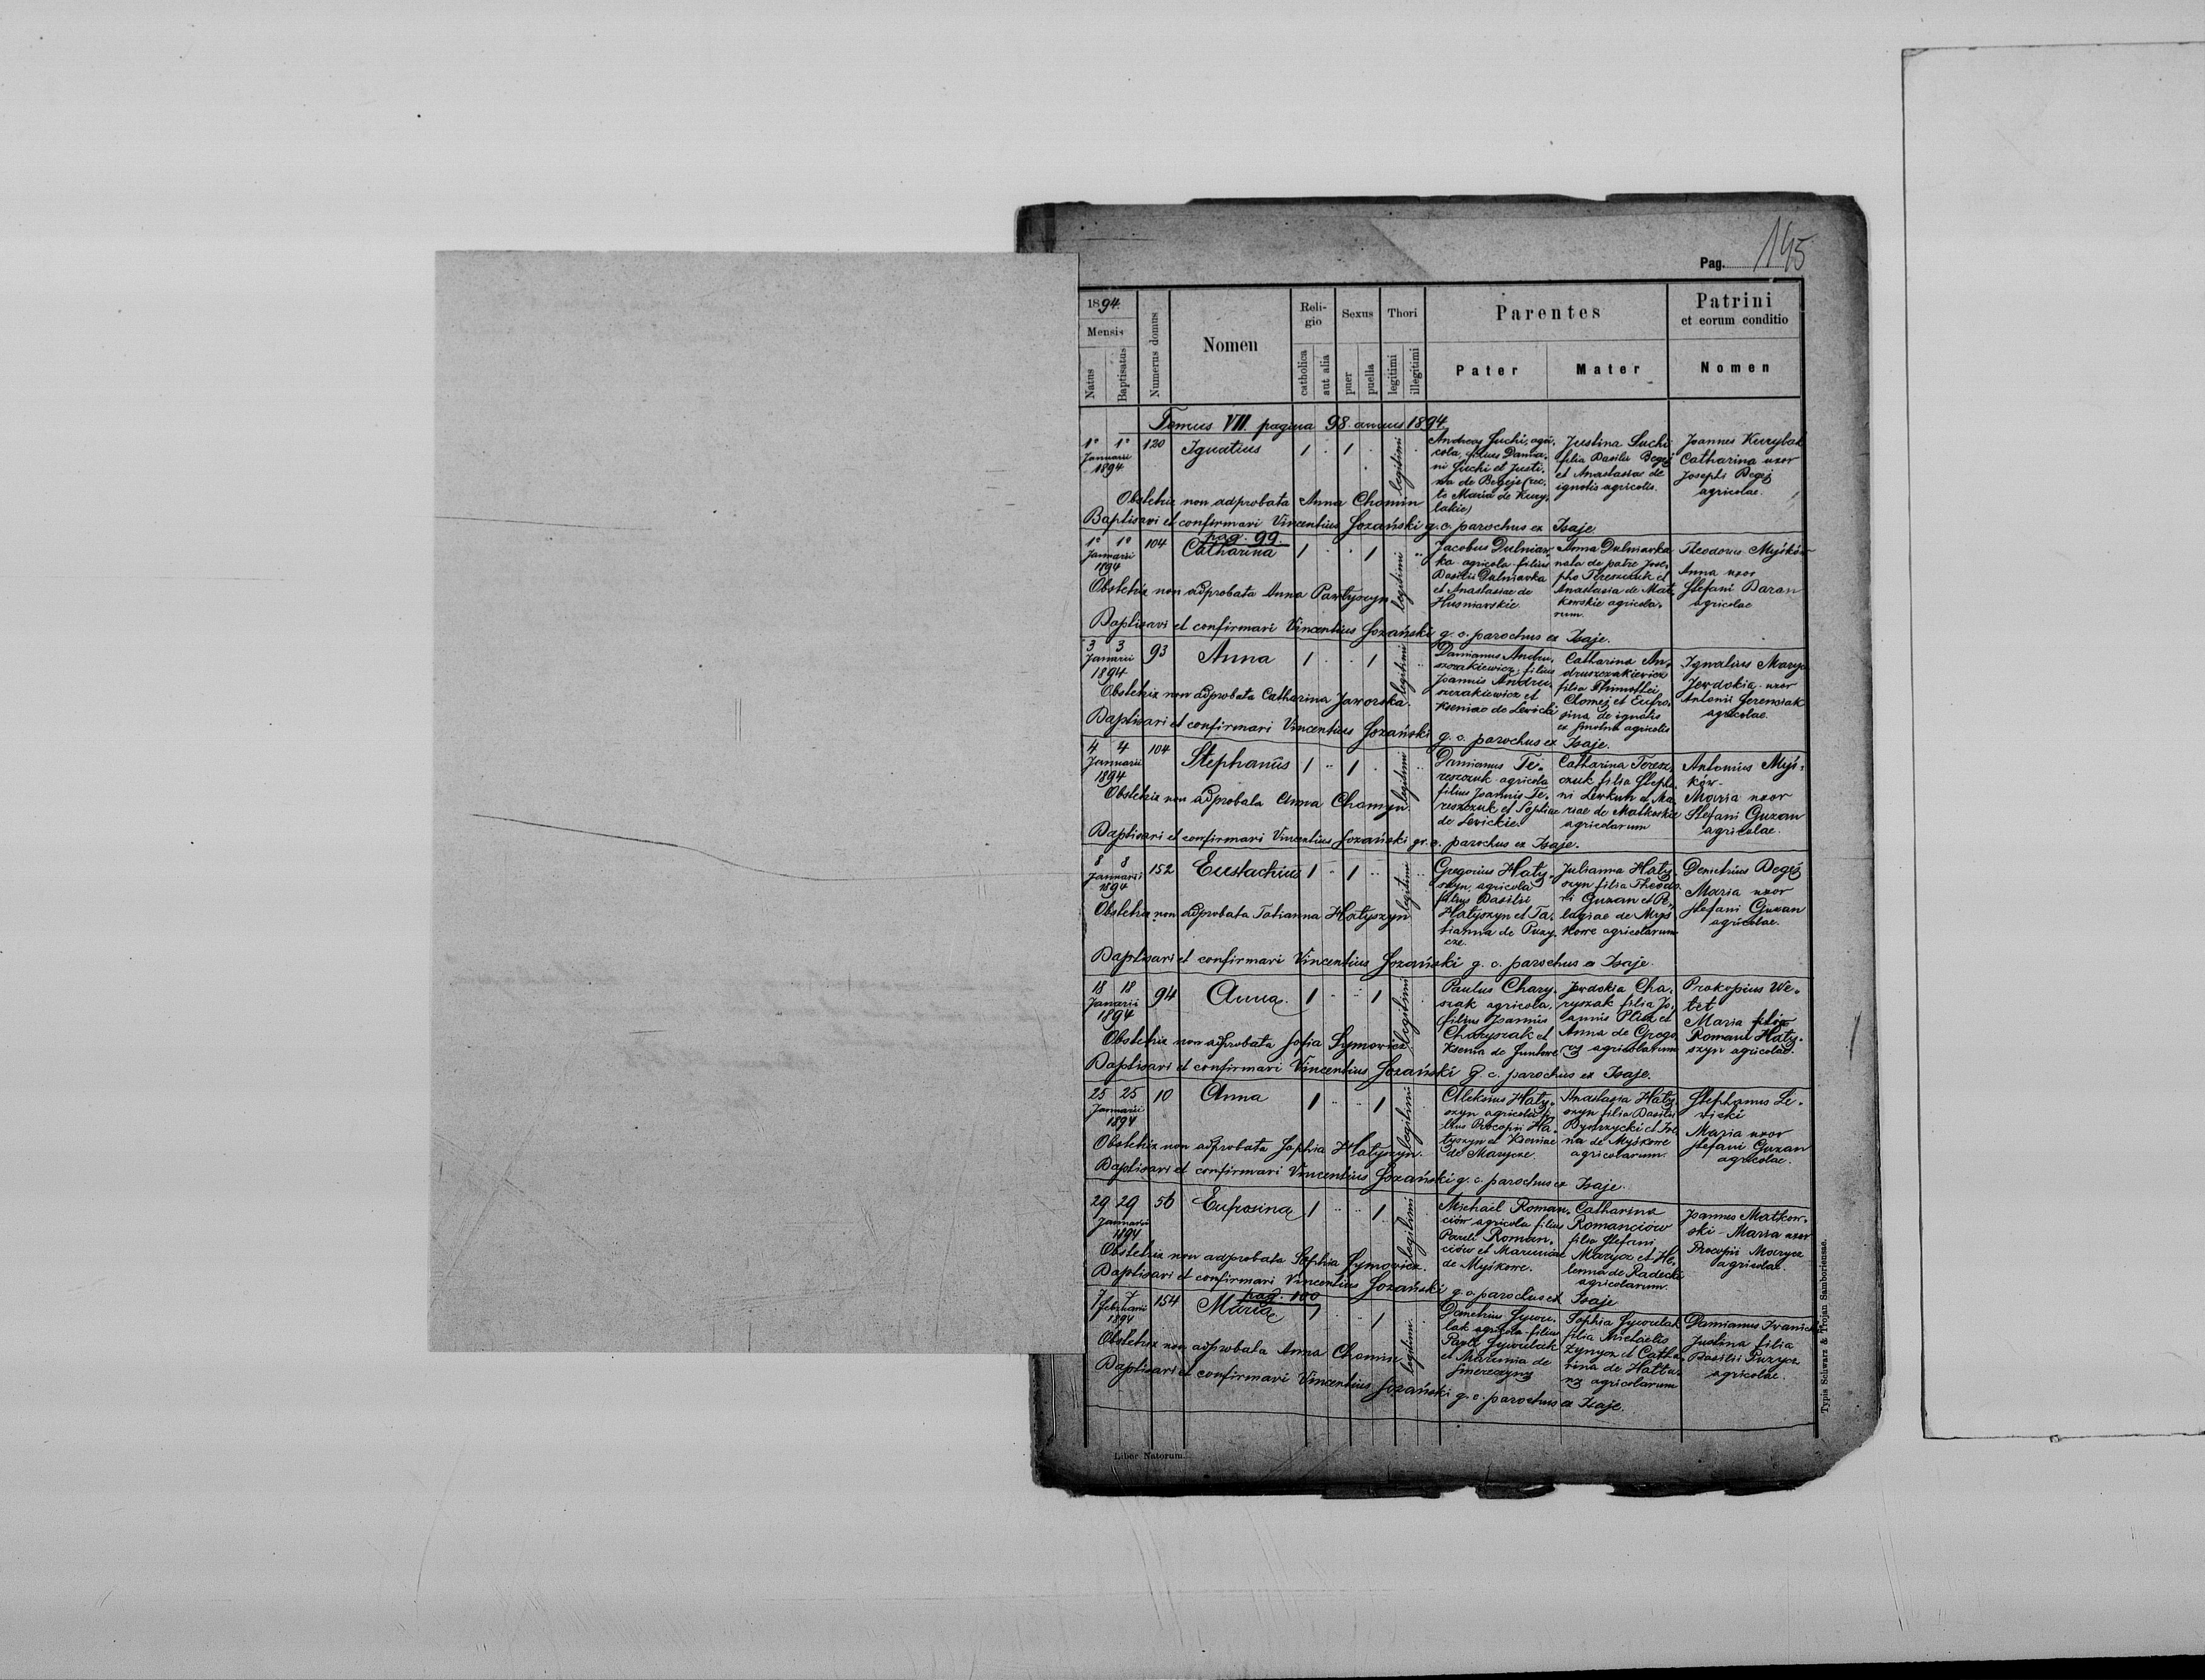 Pag. 145
1894
Mensis
Natus
Baptisatus
Numerus domus
Nomen
Religio
catholica
aut alia
Sexus
puer
puella
Thori
legitimi
illegitimi
Parentes
Pater
Mater
Patrini
et eorum conditio
Nomen
Tomus VII. pagina 98. annus 1894
1º 1º
Januarii
1894
120
Ignatius
1 1
legitimi
Andreas Suchi, agri-
cola, filius Damia-
ni Suchi et Justi-
na de Begeje (rec-
te Maria de Kury-
lakie)
Justina Suchi
filia Basilii Begej
et Anastasiae de
ignotis agricolis.
Joannes Kurylak
Catharina uxor
Josephi Begej
agricolae.
Obstetrix non adprobata Anna Chomin
Baptisavi et confirmavi Vincentius Łozański g. c. parochus ex Isaje
pag. 99.
1º 1º
Januarii
1894
104
Catharina
1 1
legitimi
Jacobus Dulniaw-
ka agricola filius
Basilii Dulniawka
et Anastasiae de
Husniawskie
Anna Dulniawka
nata de patre Jose-
pho Tereszczuk et
Anastasia de Mat-
kowskie agricola-
rum.
Theodorus Myśków
Anna uxor
Stefani Baran
agricolae
Obstetrix non adprobata Anna Pawłyszyn
Baptisavi et confirmavi Vincentius Łozański g. c. parochus ex Isaje.
3 3
Januarii
1894
93
Anna
1 1
legitimi
Damianus Andru-
szczakiewicz filius
Joannis Andru-
szczakiewicz et
Kseniae de Lewicki
Catharina An-
druszczakiewicz
filia Thimothei
Chomej et Eufro-
sina de ignotis
ex Smolna agricolis
Ignatius Marycz
Jewdokia uxor
Antonii
agricolae.
Obstetrix non adprobata Catharina Jaworska.
Baptisavi et confirmavi Vincentius Łozański g. c. parochus ex Isaje.
4 4
Januarii
1894
104
Stephanus
1 1
legitimi
Damianus Te-
reszczuk agricola
filius Joannis Te-
reszczuk et Sophiae
de Lewickie.
Catharina Teresz-
czuk filia Stepha-
ni Lewkun et Ma-
riae de Matkoskie
agricolarum
Antonius Myś-
ków.
Maria uxor
Stefani Guzan
agricolae.
Obstetrix non adprobata Anna Chomyn
Baptisavi et confirmavi Vincentius Łozański gr. c. parochus ex Isaje.
8 8
Januarii
1894
152
Eustachius
1 1
legitimi
Gregorius Haty-
szyn, agricola
filius Basilii
Hatyszyn et Ta-
tianna de Puzy-
cze.
Julianna Haty-
szyn filia Theodo-
ri Guzan et Pe-
lagiae de Myś-
kowe agricolarum
Demetrius Begej
Maria uxor
Stefani Guzan
agricolae.
Obstetrix non adprobata Tatianna Hatyszyn
Baptisavi et confirmavi Vincentius Łozański g. c. parochus ex Isaje.
18 18
Januarii
1894
94
Anna.
1 1
legitimi
Paulus Chary-
szak agricola,
filius Joannis
Charyszak et
Ksenia de
Jewdokia Cha-
ryszak filia Jo-
annis Plisz et
Anna de Grego-
rz agricolarum
Prokopius We-
tet
Maria filia
Romani Haty-
szyn agricolae.
Obstetrix non adprobata Sofia Symowicz
Baptisavi et confirmavi Vincentius Łozański g. c. parochus ex Isaje.
25 25
Januarii
1894
10
Anna
1 1
legitimi
Aleksius Haty-
szyn agricola fi-
lius Procopii Ha-
tyszyn et Kseniae
de Marycze.
Anastasia Haty-
szyn filia Basilii
Bystrzycki et Ire-
na de Myśkowe
agricolarum.
Stephanus Le-
wicki
Maria uxor
Stefani Guzan
agricolae.
Obstetrix non adprobata Sophia Hatyszyn.
Baptisavi et confirmavi Vincentius Łozański g. c. parochus ex Isaje.
29 29
Januarii
1894
56
Eufrosina
1 1
legitimi
Michail Roman-
ciów agricola filius
Pauli Roman-
ciów et Marunia
de Myśkowe.
Catharina
Romanciów
filia Stefani
Marycz et He-
lenna de Radecki
agricolarum.
Joannes Matkow-
ski Maria uxor
Procopii Marycz
agricolae.
Obstetrix non adprobata Sophia Symowicz.
Baptisavi et confirmavi Vincentius Łozański g. c. parochus ex Isaje
pag. 100
7 7
Februarii
1894
154
Maria
1 1
legitimi.
Demetrius Sywu-
lak agricola filius
Pauli Sywulak
et Marunia de
Sophia Sywulak
filia Michaelis
Zynycz et Catha-
rina de Hattu-
nz agricolarum
Damianus Iwanicki
Justina filia
Basilii Puzycz
agricolae.
Obstetrix non adprobata Anna Chomin
Baptisavi et confirmavi Vincentius Łozański g. c. parochus ex Isaje.
Liber Natorum.
Typis Schwarz & Trojan Samboriensae.